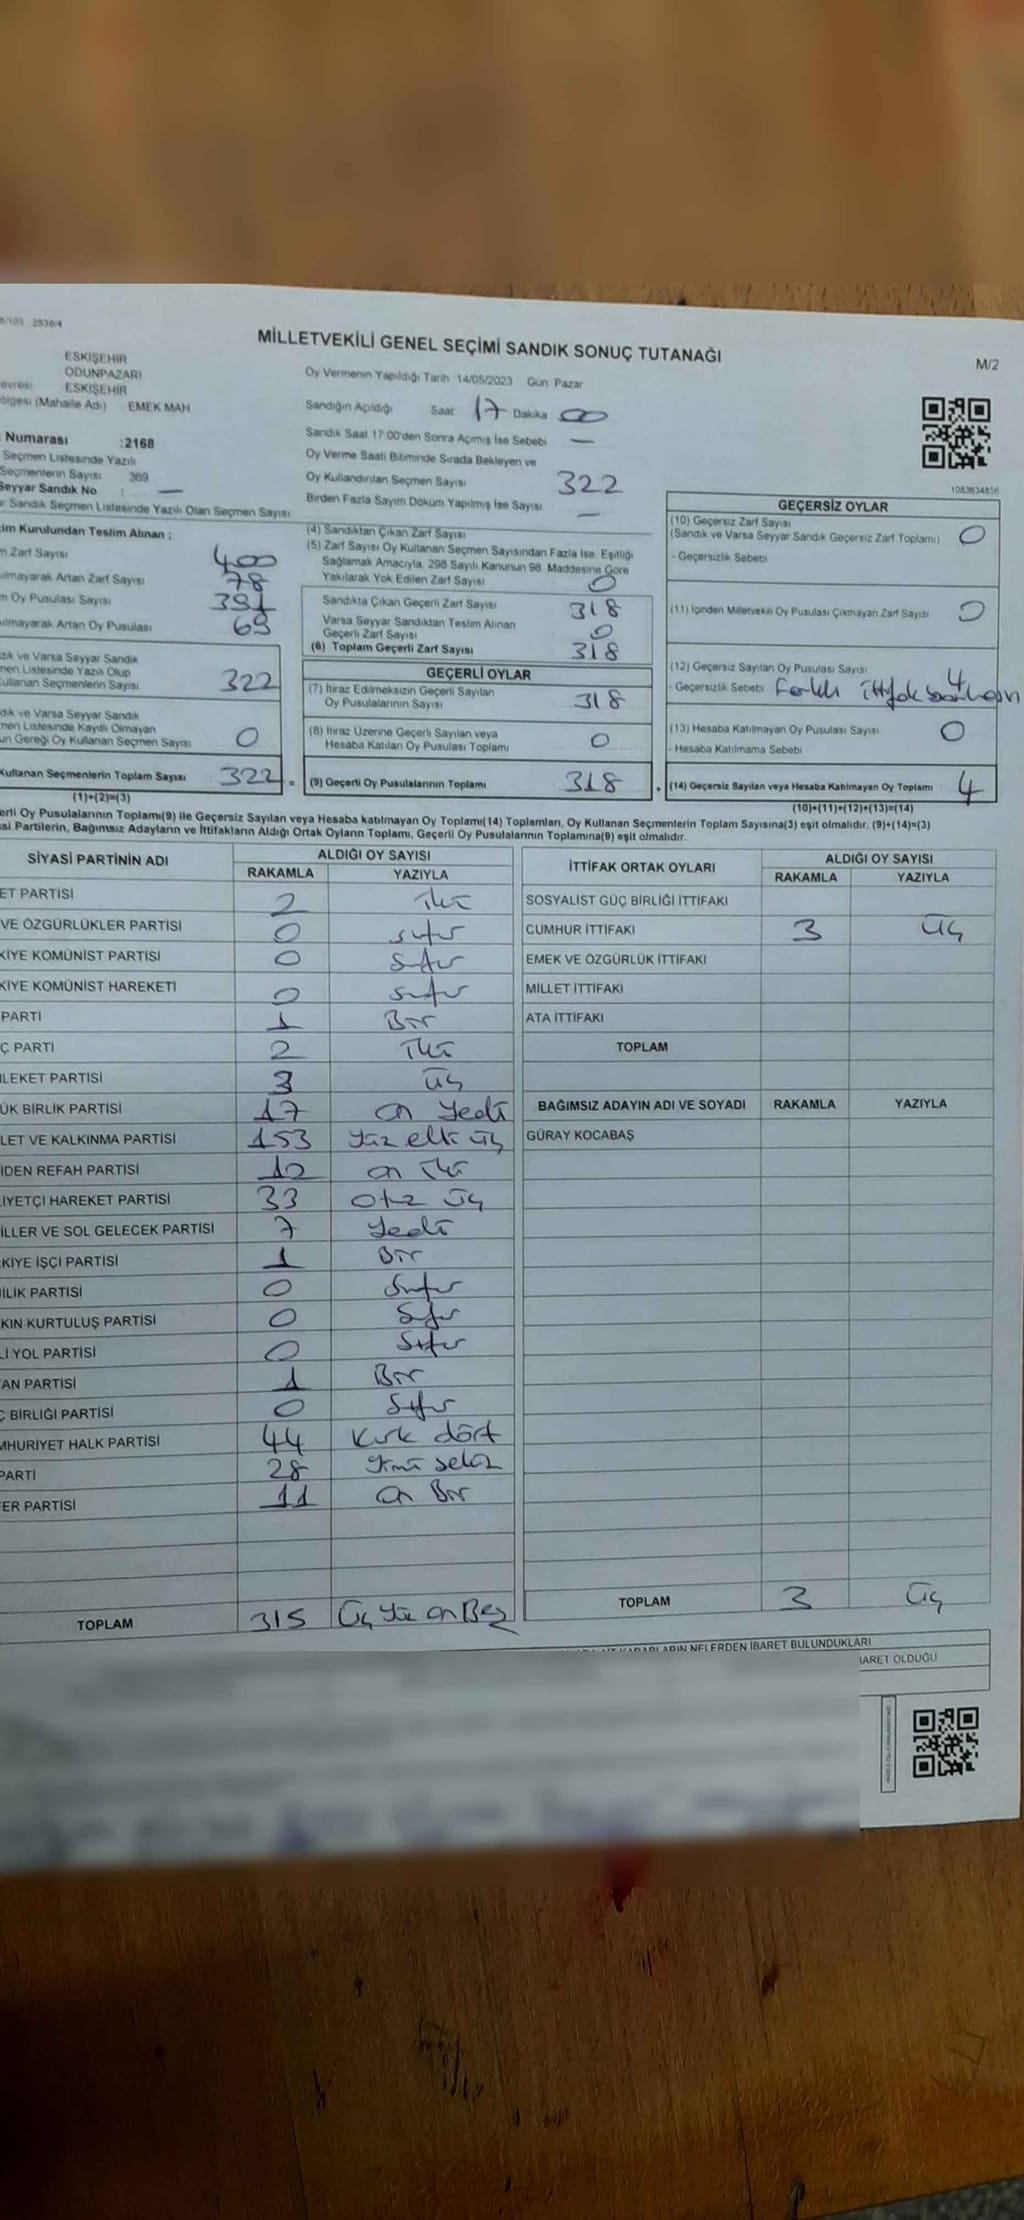 8/105 2536/4
MİLLETVEKİLİ GENEL SEÇİMİ SANDIK SONUÇ TUTANAĞI
M/2
ESKİŞEHİR
ODUNPAZARI
evresi ESKİŞEHİR
ölgesi (Mahalle Adı) EMEK MAH
Numarası :2168
Seçmen Listesinde Yazılı
Seçmenlerin Sayısı 369
Seyyar Sandık No : —
r Sandık Seçmen Listesinde Yazılı Olan Seçmen Sayısı
Oy Vermenin Yapıldığı Tarih 14/05/2023 Gün Pazar
Sandığın Açıldığı Saat 17 Dakika 00
Sandık Saat 17:00'den Sonra Açmış İse Sebebi —
Oy Verme Saati Bitiminde Sırada Bekleyen ve
Oy Kullandırılan Seçmen Sayısı 322
Birden Fazla Sayım Döküm Yapılmış İse Sayısı —
1083634856
im Kurulundan Teslim Alınan ;
m Zarf Sayısı 400
ılmayarak Artan Zarf Sayısı 78
m Oy Pusulası Sayısı 391
ılmayarak Artan Oy Pusulası 69
dık ve Varsa Seyyar Sandık
men Listesinde Yazılı Olup
ullanan Seçmenlerin Sayısı 322
dık ve Varsa Seyyar Sandık
men Listesinde Kaydlı Olmayan
un Gereği Oy Kullanan Seçmen Sayısı 0
Kullanan Seçmenlerin Toplam Sayısı 322
(1)+(2)=(3)
(4) Sandıktan Çıkan Zarf Sayısı
(5) Zarf Sayısı Oy Kullanan Seçmen Sayısından Fazla İse, Eşitliği
Sağlamak Amacıyla, 298 Sayılı Kanunun 98. Maddesine Göre
Yakılarak Yok Edilen Zarf Sayısı 0
Sandıkta Çıkan Geçerli Zarf Sayısı 318
Varsa Seyyar Sandıktan Teslim Alınan
Geçerli Zarf Sayısı 0
(6) Toplam Geçerli Zarf Sayısı 318
GEÇERLİ OYLAR
(7) İtiraz Edilmeksizin Geçerli Sayılan
Oy Pusulalarının Sayısı 318
(8) İtiraz Üzerine Geçerli Sayılan veya
Hesaba Katılan Oy Pusulası Toplamı 0
= (9) Geçerli Oy Pusulalarının Toplamı 318
GEÇERSİZ OYLAR
(10) Geçersiz Zarf Sayısı
(Sandık ve Varsa Seyyar Sandık Geçersiz Zarf Toplamı) 0
- Geçersizlik Sebebi
(11) İçinden Milletvekili Oy Pusulası Çıkmayan Zarf Sayısı 0
(12) Geçersiz Sayılan Oy Pusulası Sayısı 4
- Geçersizlik Sebebi Farklı ittifak
(13) Hesaba Katılmayan Oy Pusulası Sayısı 0
- Hesaba Katılmama Sebebi
+ (14) Geçersiz Sayılan veya Hesaba Katılmayan Oy Toplamı 4
(10)+(11)+(12)+(13)=(14)
erli Oy Pusulalarının Toplamı(9) ile Geçersiz Sayılan veya Hesaba katılmayan Oy Toplamı(14) Toplamları, Oy Kullanan Seçmenlerin Toplam Sayısına(3) eşit olmalıdır. (9)+(14)=(3)
si Partilerin, Bağımsız Adayların ve İttifakların Aldığı Ortak Oyların Toplamı, Geçerli Oy Pusulalarının Toplamına(9) eşit olmalıdır.
SİYASİ PARTİNİN ADI ALDIĞI OY SAYISI
RAKAMLA YAZIYLA
ET PARTİSİ 2 iki
VE ÖZGÜRLÜKLER PARTİSİ 0 sıfır
KİYE KOMÜNİST PARTİSİ 0 sıfır
KİYE KOMÜNİST HAREKETİ 0 sıfır
PARTİ 1 Bir
Ç PARTİ 2 iki
LEKET PARTİSİ 3 üç
ÜK BİRLİK PARTİSİ 17 on yedi
LET VE KALKINMA PARTİSİ 153 yüz elli üç
İDEN REFAH PARTİSİ 12 on iki
LİYETÇİ HAREKET PARTİSİ 33 otuz üç
İLLER VE SOL GELECEK PARTİSİ 7 yedi
KİYE İŞÇİ PARTİSİ 1 Bir
İLİK PARTİSİ 0 sıfır
KIN KURTULUŞ PARTİSİ 0 sıfır
Lİ YOL PARTİSİ 0 sıfır
AN PARTİSİ 1 Bir
Ç BİRLİĞİ PARTİSİ 0 sıfır
MHURİYET HALK PARTİSİ 44 kırk dört
PARTİ 28 yirmi sekiz
ER PARTİSİ 11 on Bir
TOPLAM 315 üç yüz on Beş
İTTİFAK ORTAK OYLARI ALDIĞI OY SAYISI
RAKAMLA YAZIYLA
SOSYALİST GÜÇ BİRLİĞİ İTTİFAKI
CUMHUR İTTİFAKI 3 üç
EMEK VE ÖZGÜRLÜK İTTİFAKI
MİLLET İTTİFAKI
ATA İTTİFAKI
TOPLAM
BAĞIMSIZ ADAYIN ADI VE SOYADI RAKAMLA YAZIYLA
GÜRAY KOCABAŞ
TOPLAM 3 üç
KARARLARIN NELERDEN İBARET BULUNDUKLARI
BARET OLDUĞU